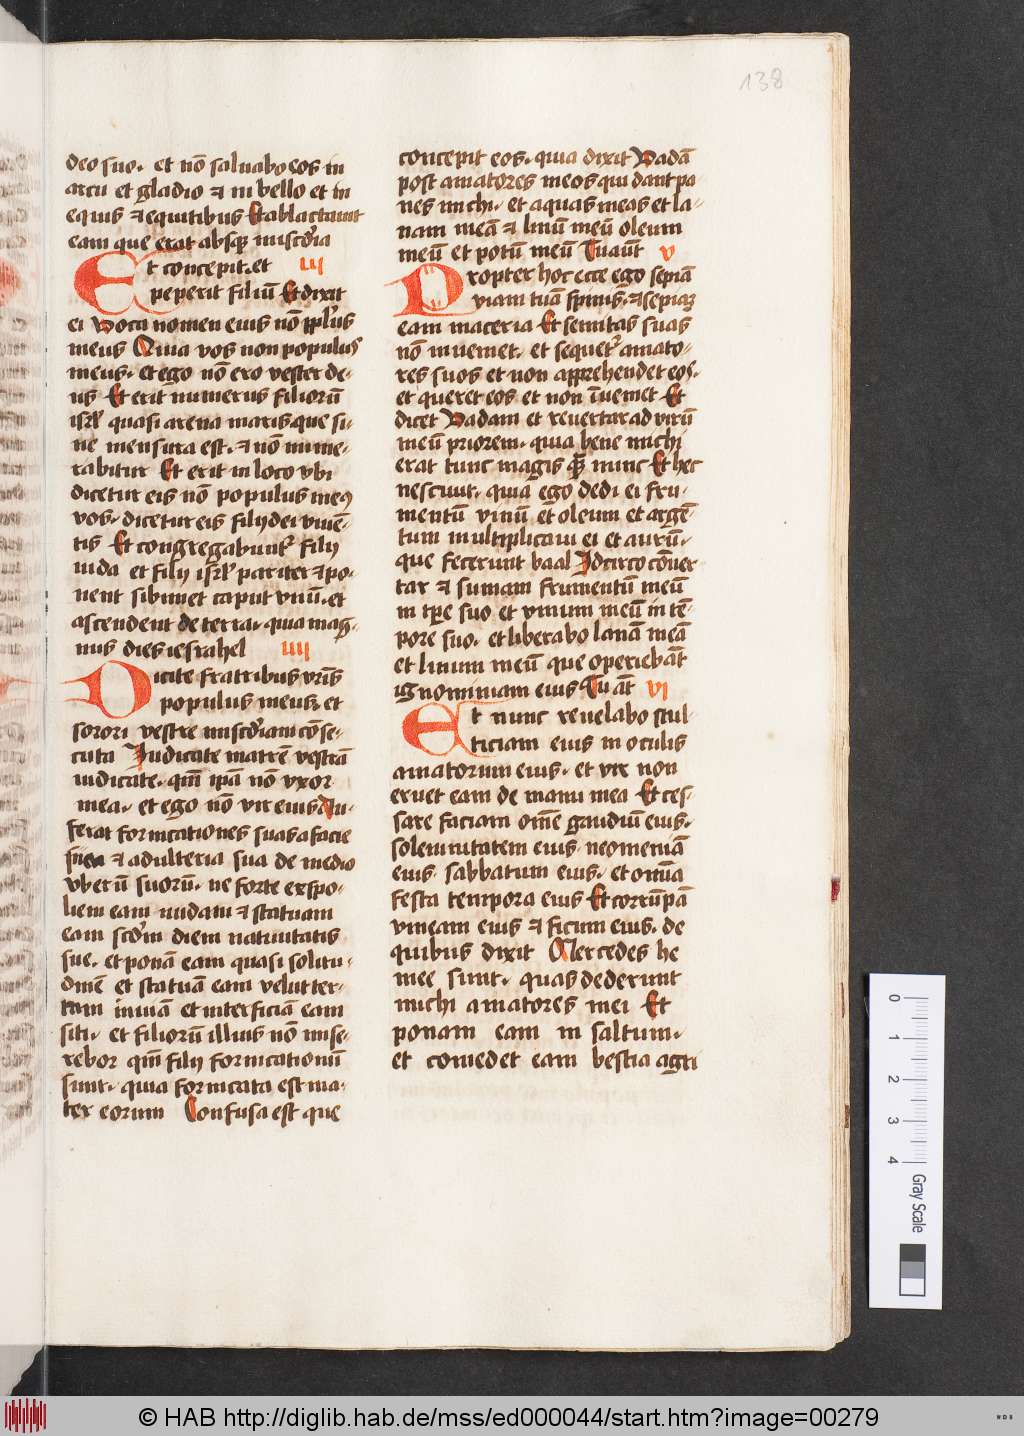 138
deo suo. et nō saluabo eos in
arcu et gladio ⁊ in bello et in
equis ⁊ equitibus Et ablactauit
eam que erat absqꝫ misc̄dia
Et concepit. et III
peperit filiū Et dixit
ei Voca nomen eius nō pplūs
meus Quia vos non populus
meus. et ego nō ero vester de-
us Et erit numerus filiorū
isrl̄ quasi arena maris que si-
ne mensura est. ⁊ nō nume-
rabitur Et erit in loco vbi
dicetur eis nō populus meꝰ
vos. dicetur eis filij dei viuē-
tis Et congregabunt᷑ filij
iuda et filij isrl̄ pariter ⁊ po-
nent sibimet caput vnū. et
ascendent de terra. quia mag-
nus dies iesrahel IIII
Dicite fratribus vr̄is
populus meus. et
sorori vestre misc̄diam cōse-
cuta Iudicate matrē vestrā
iudicate. qm̄ ip̄a nō vxor
mea. et ego nō vir eius Au-
ferat fornicationes suas a facie
⁊ adulteria sua de medio
vberū suorū. ne forte expo-
liem eam nudam ⁊ statuam
eam scd̄m diem natiuitatis
sue. et ponā eam quasi solitu-
dinē et statuā eam velut ter-
ram inuiā et interficiā eam
siti. et filiorū illius nō mise-
rebor qm̄ filij fornicationū
sunt. quia fornicata est ma-
ter eorum Confusa est que
concepit eos. quia dixit Vadā
post amatores meos qui dant pa-
nes michi. et aquas meas et la-
nam meā ⁊ linū meū oleum
meū et potū meū Tuaut̄ V
Propter hoc ecce ego sepiā
viam tuā spinis. ⁊ sepiaꝫ
eam maceria Et semitas suas
nō inueniet. et sequet᷑ amato-
res suos et non apprehendet eos.
et queret eos et non īueniet Et
dicet Vadam et reuertar ad virū
meū priorem. quia bene michi
erat tunc magis qꝫ nunc Et hec
nesciuit. quia ego dedi ei fru-
mentū vinū et oleum et argē-
tum multiplicaui ei et aurū.
que fecerunt baal Idcirco cōuer
tar ⁊ sumam frumentū meū
in tpe suo et vinum meū in tē-
pore suo. et liberabo lanā meā
et linum meū que operiebāt
ignominiam eius Tu āt VI
Et nunc reuelabo stul-
ticiam eius in oculis
amatorum eius. et vir non
eruet eam de manu mea Et ces-
sare faciam omē gaudiū eius.
solemnitatem eius. neomeniā
eius. sabbatum eius. et omīa
festa tempora eius Et corrūpā
vineam eius ⁊ ficum eius. de
quibus dixit Mercedes he
mee sunt. quas dederunt
michi amatores mei Et
ponam eam in saltum.
et comedet eam bestia agri
0 1 2 3 4
Gray Scale
© HAB http://diglib.hab.de/mss/ed000044/start.htm?image=00279